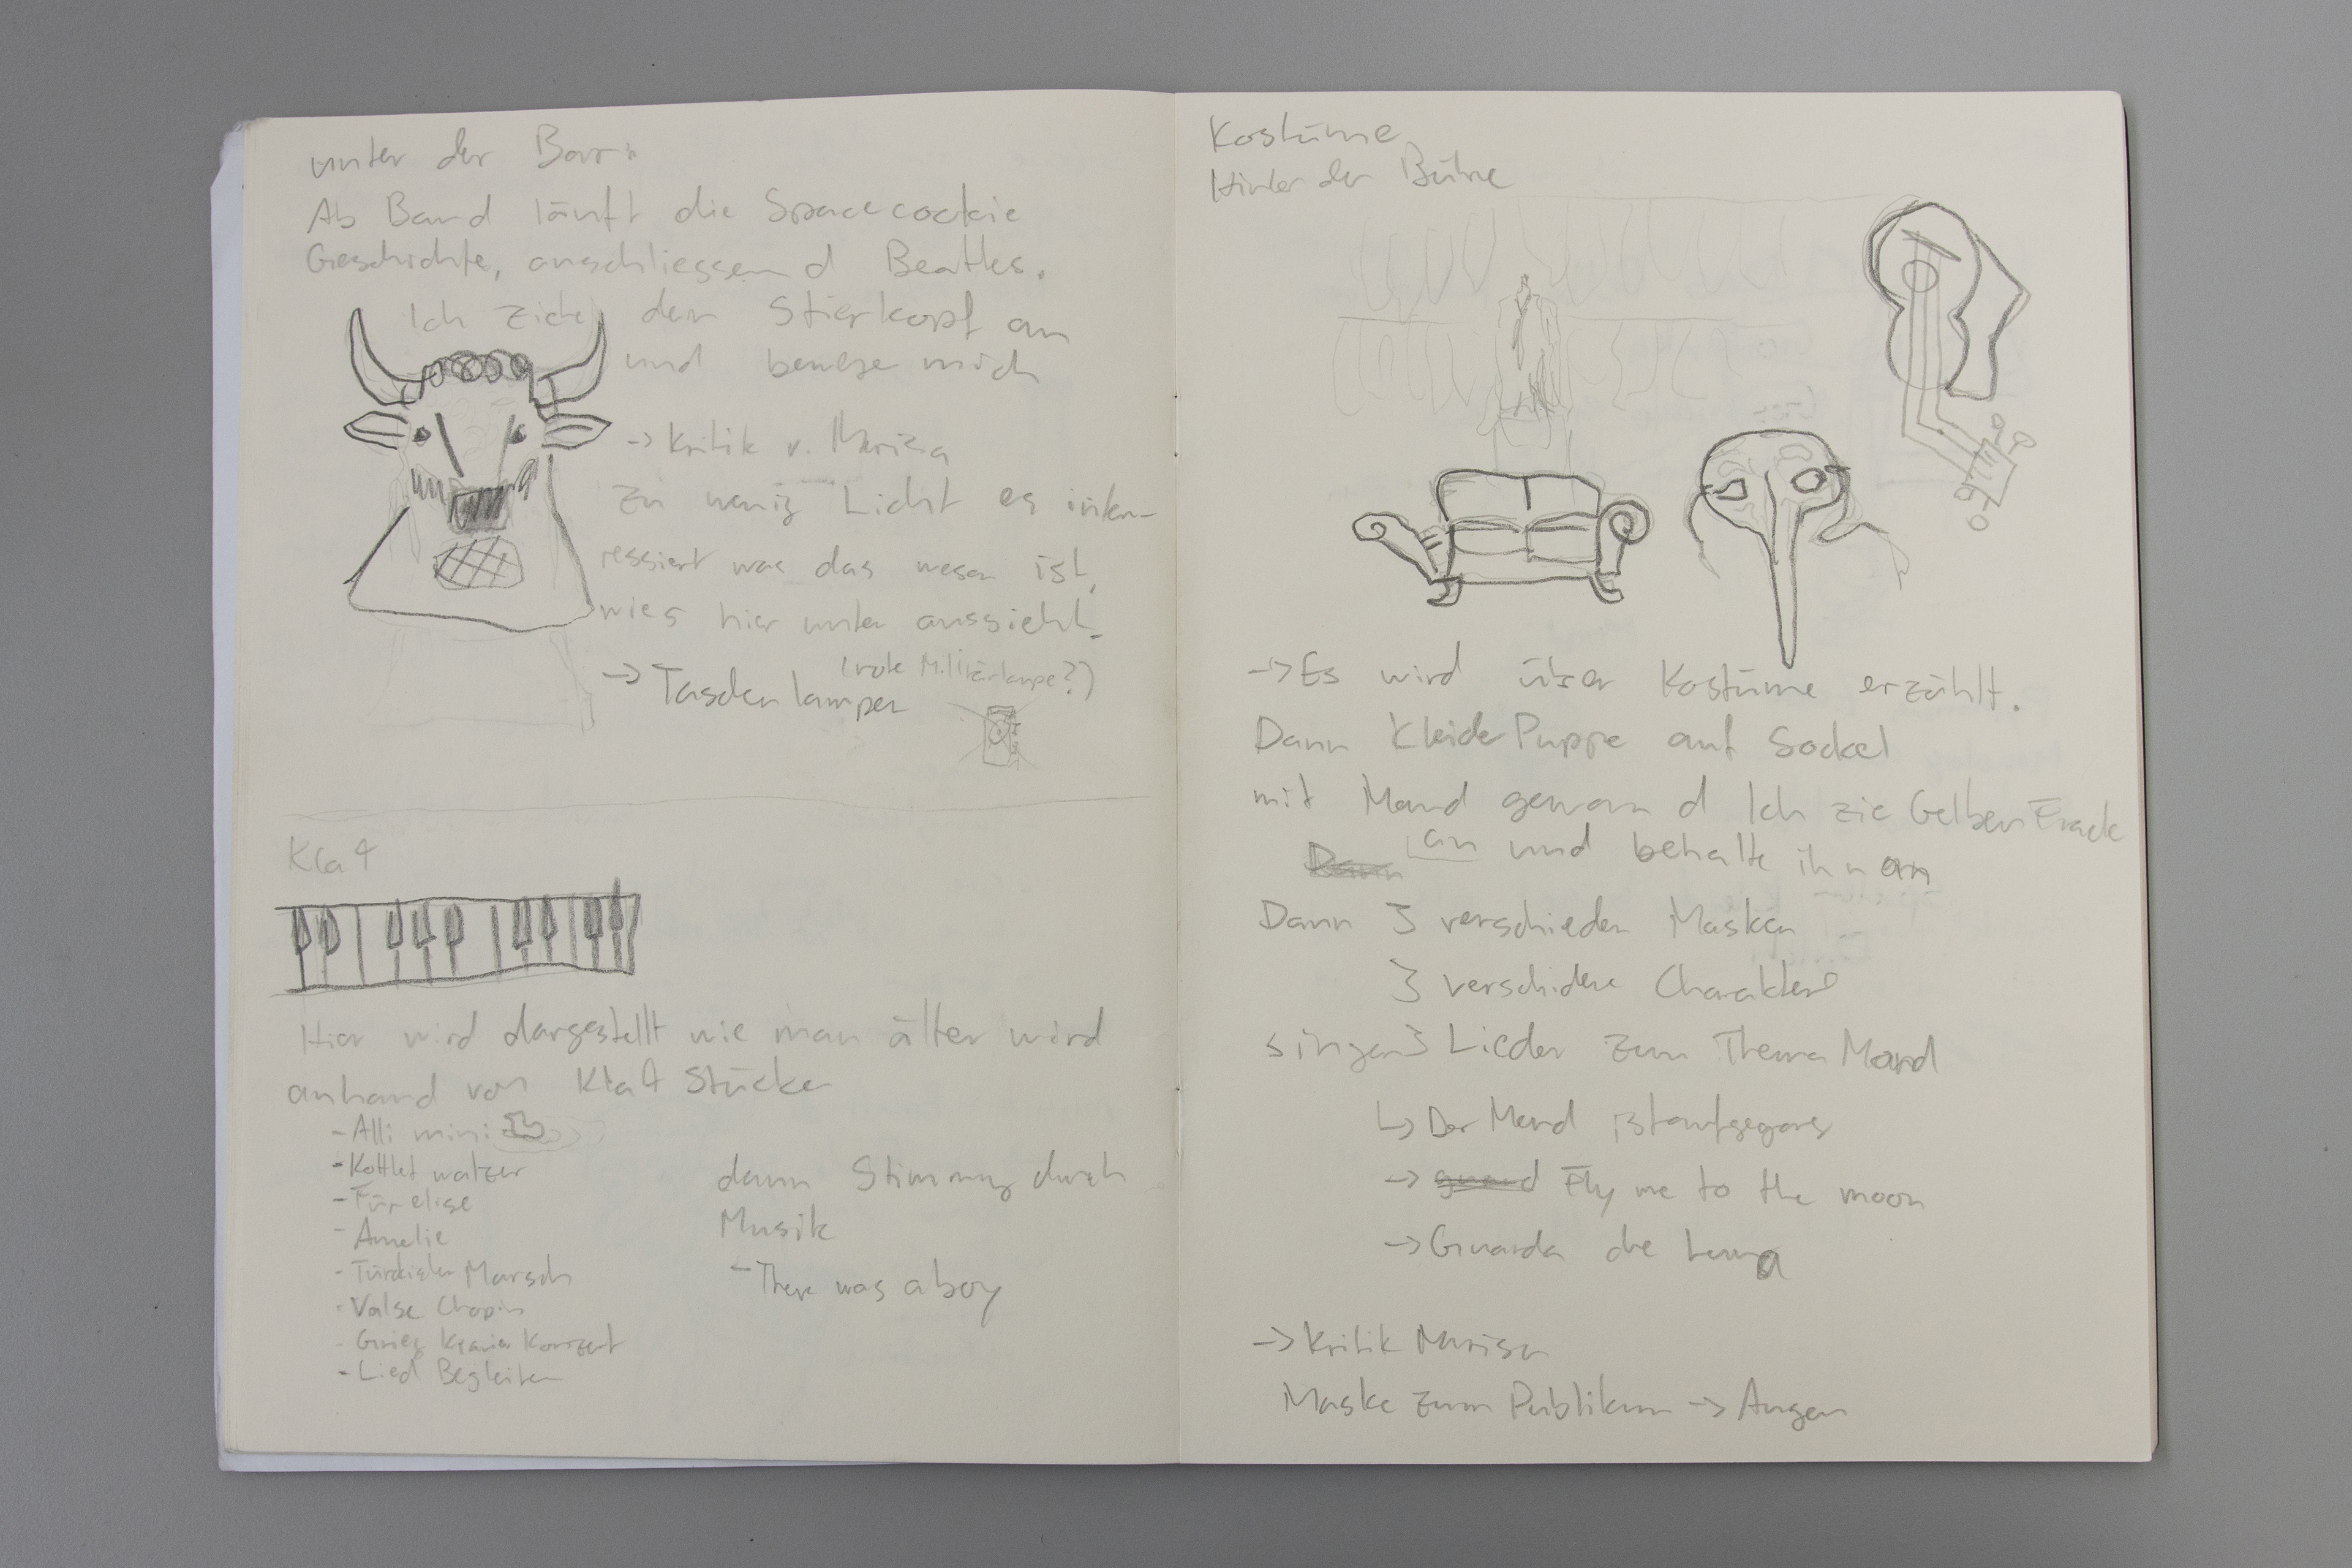 unter der Bar:
Ab Band läuft die Spacecockie
Geschichte, anschliessend Beatles.
Ich ziehe den Stierkopf an
und bewege mich
-> Kritik v. Marisa
zu wenig Licht es inter-
ressiert was das wesen ist,
wies hier unten aussieht.
-> Taschenlampen (rote Militärlampe?)
Kla4
Hier wird dargestellt wie man älter wird
anhand von Kla4 Stücken
- Alli mini
- Kottlet walzer
- Für elise
- Amelie
- Türkischer Marsch
- Valse Chopin
- Grieg Klavier Konzert
- Lied Begleiten
dann Stimmung durch
Musik
- There was a boy
Kostüme
Hinter der Bühne
-> Es wird über Kostüme erzählt.
Dann KleiderPuppe auf Sockel
mit Mond gewand Ich zie Gelben Frack
an und behalte ihn an
Dann 3 verschieden Masken
3 verschidene Charaktere
singen 3 Lieder zum Thema Mond
↳ Der Mond ist aufgegangen
-> Fly me to the moon
-> Guarda che luna
-> Kritik Marisa
Maske zum Publikum -> Augen